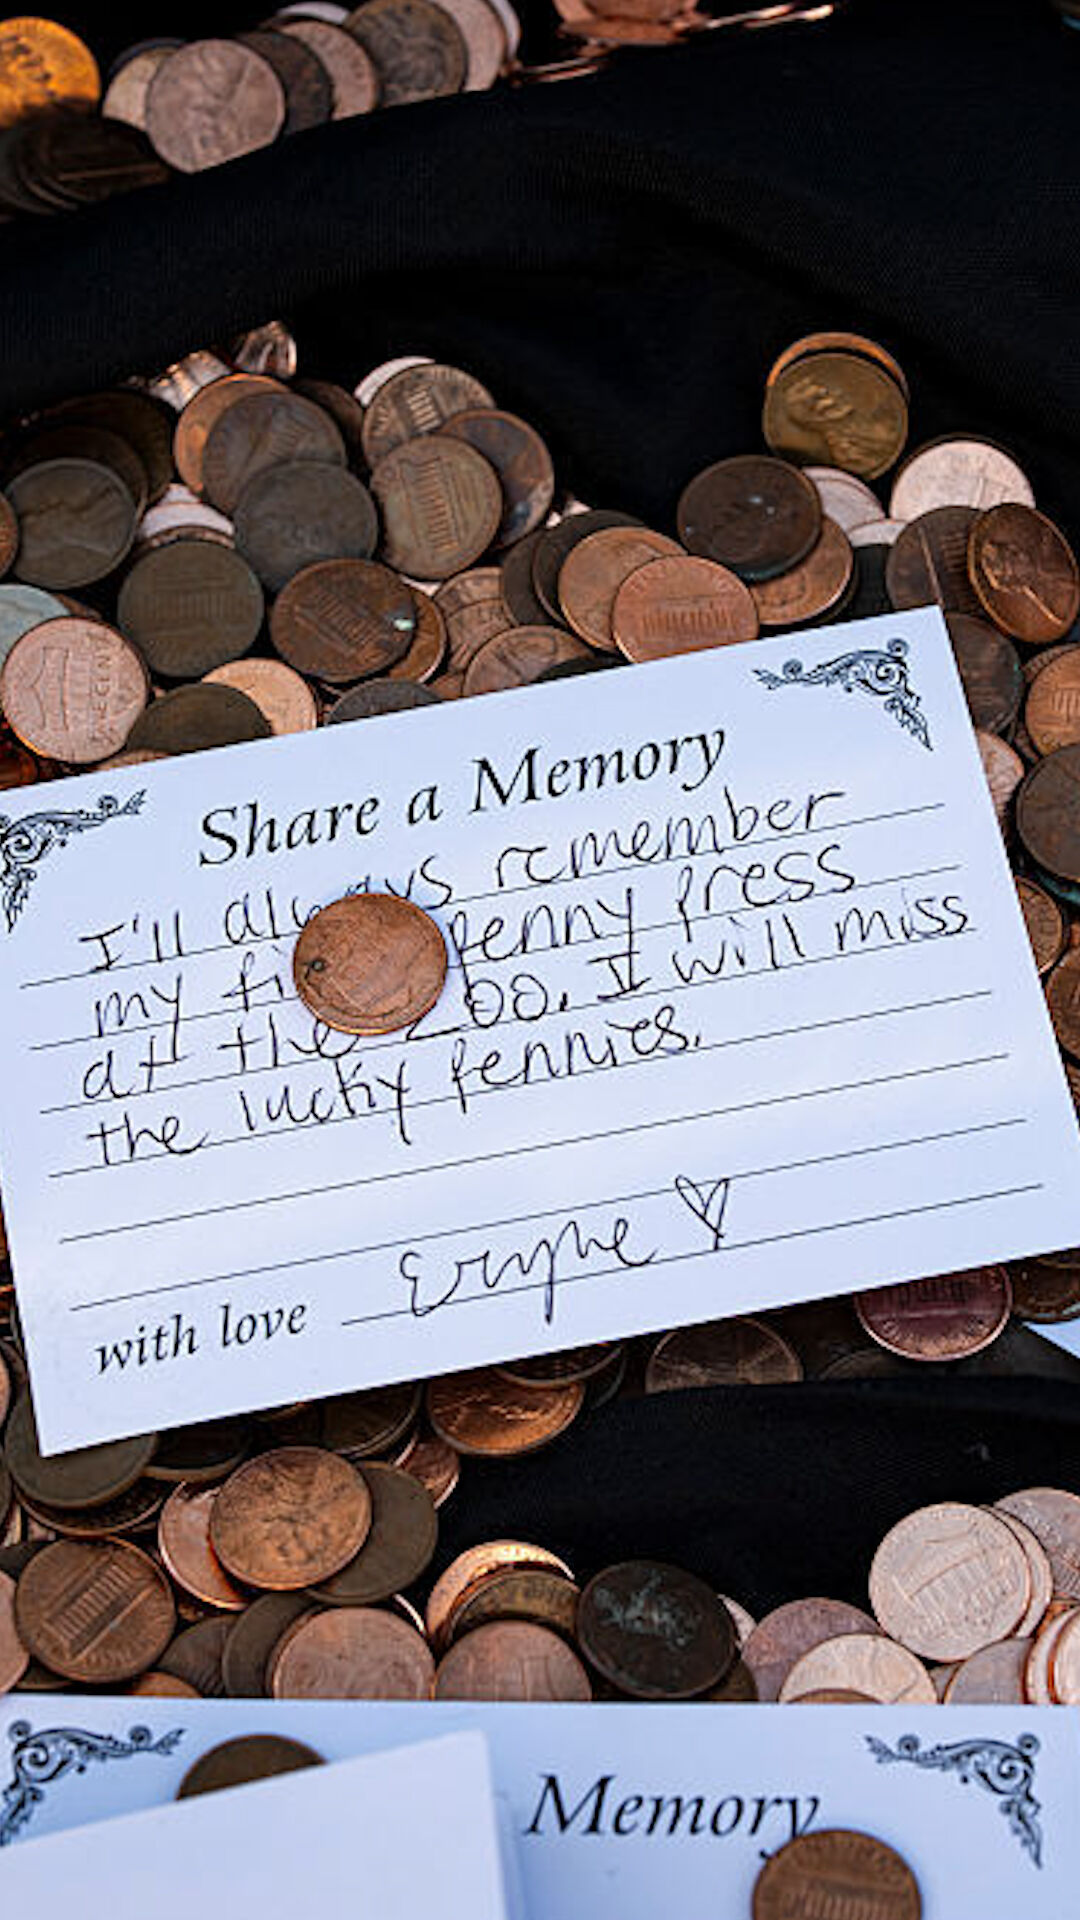 Share a Memory
I'll always remember
my penny press
at the zoo. I will miss
the lucky pennies.
with love Eryne
Memory